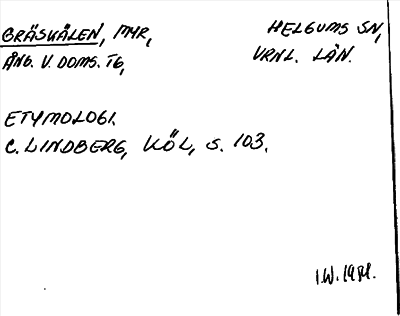 GRÄSKÅLEN, MYR, HELGUMS SN,
ÅNG. V. DOMS. TG, VRNL. LÄN.
ETYMOLOGI.
C. LINDBERG, KÖL, S. 103.
I.W. 1981.